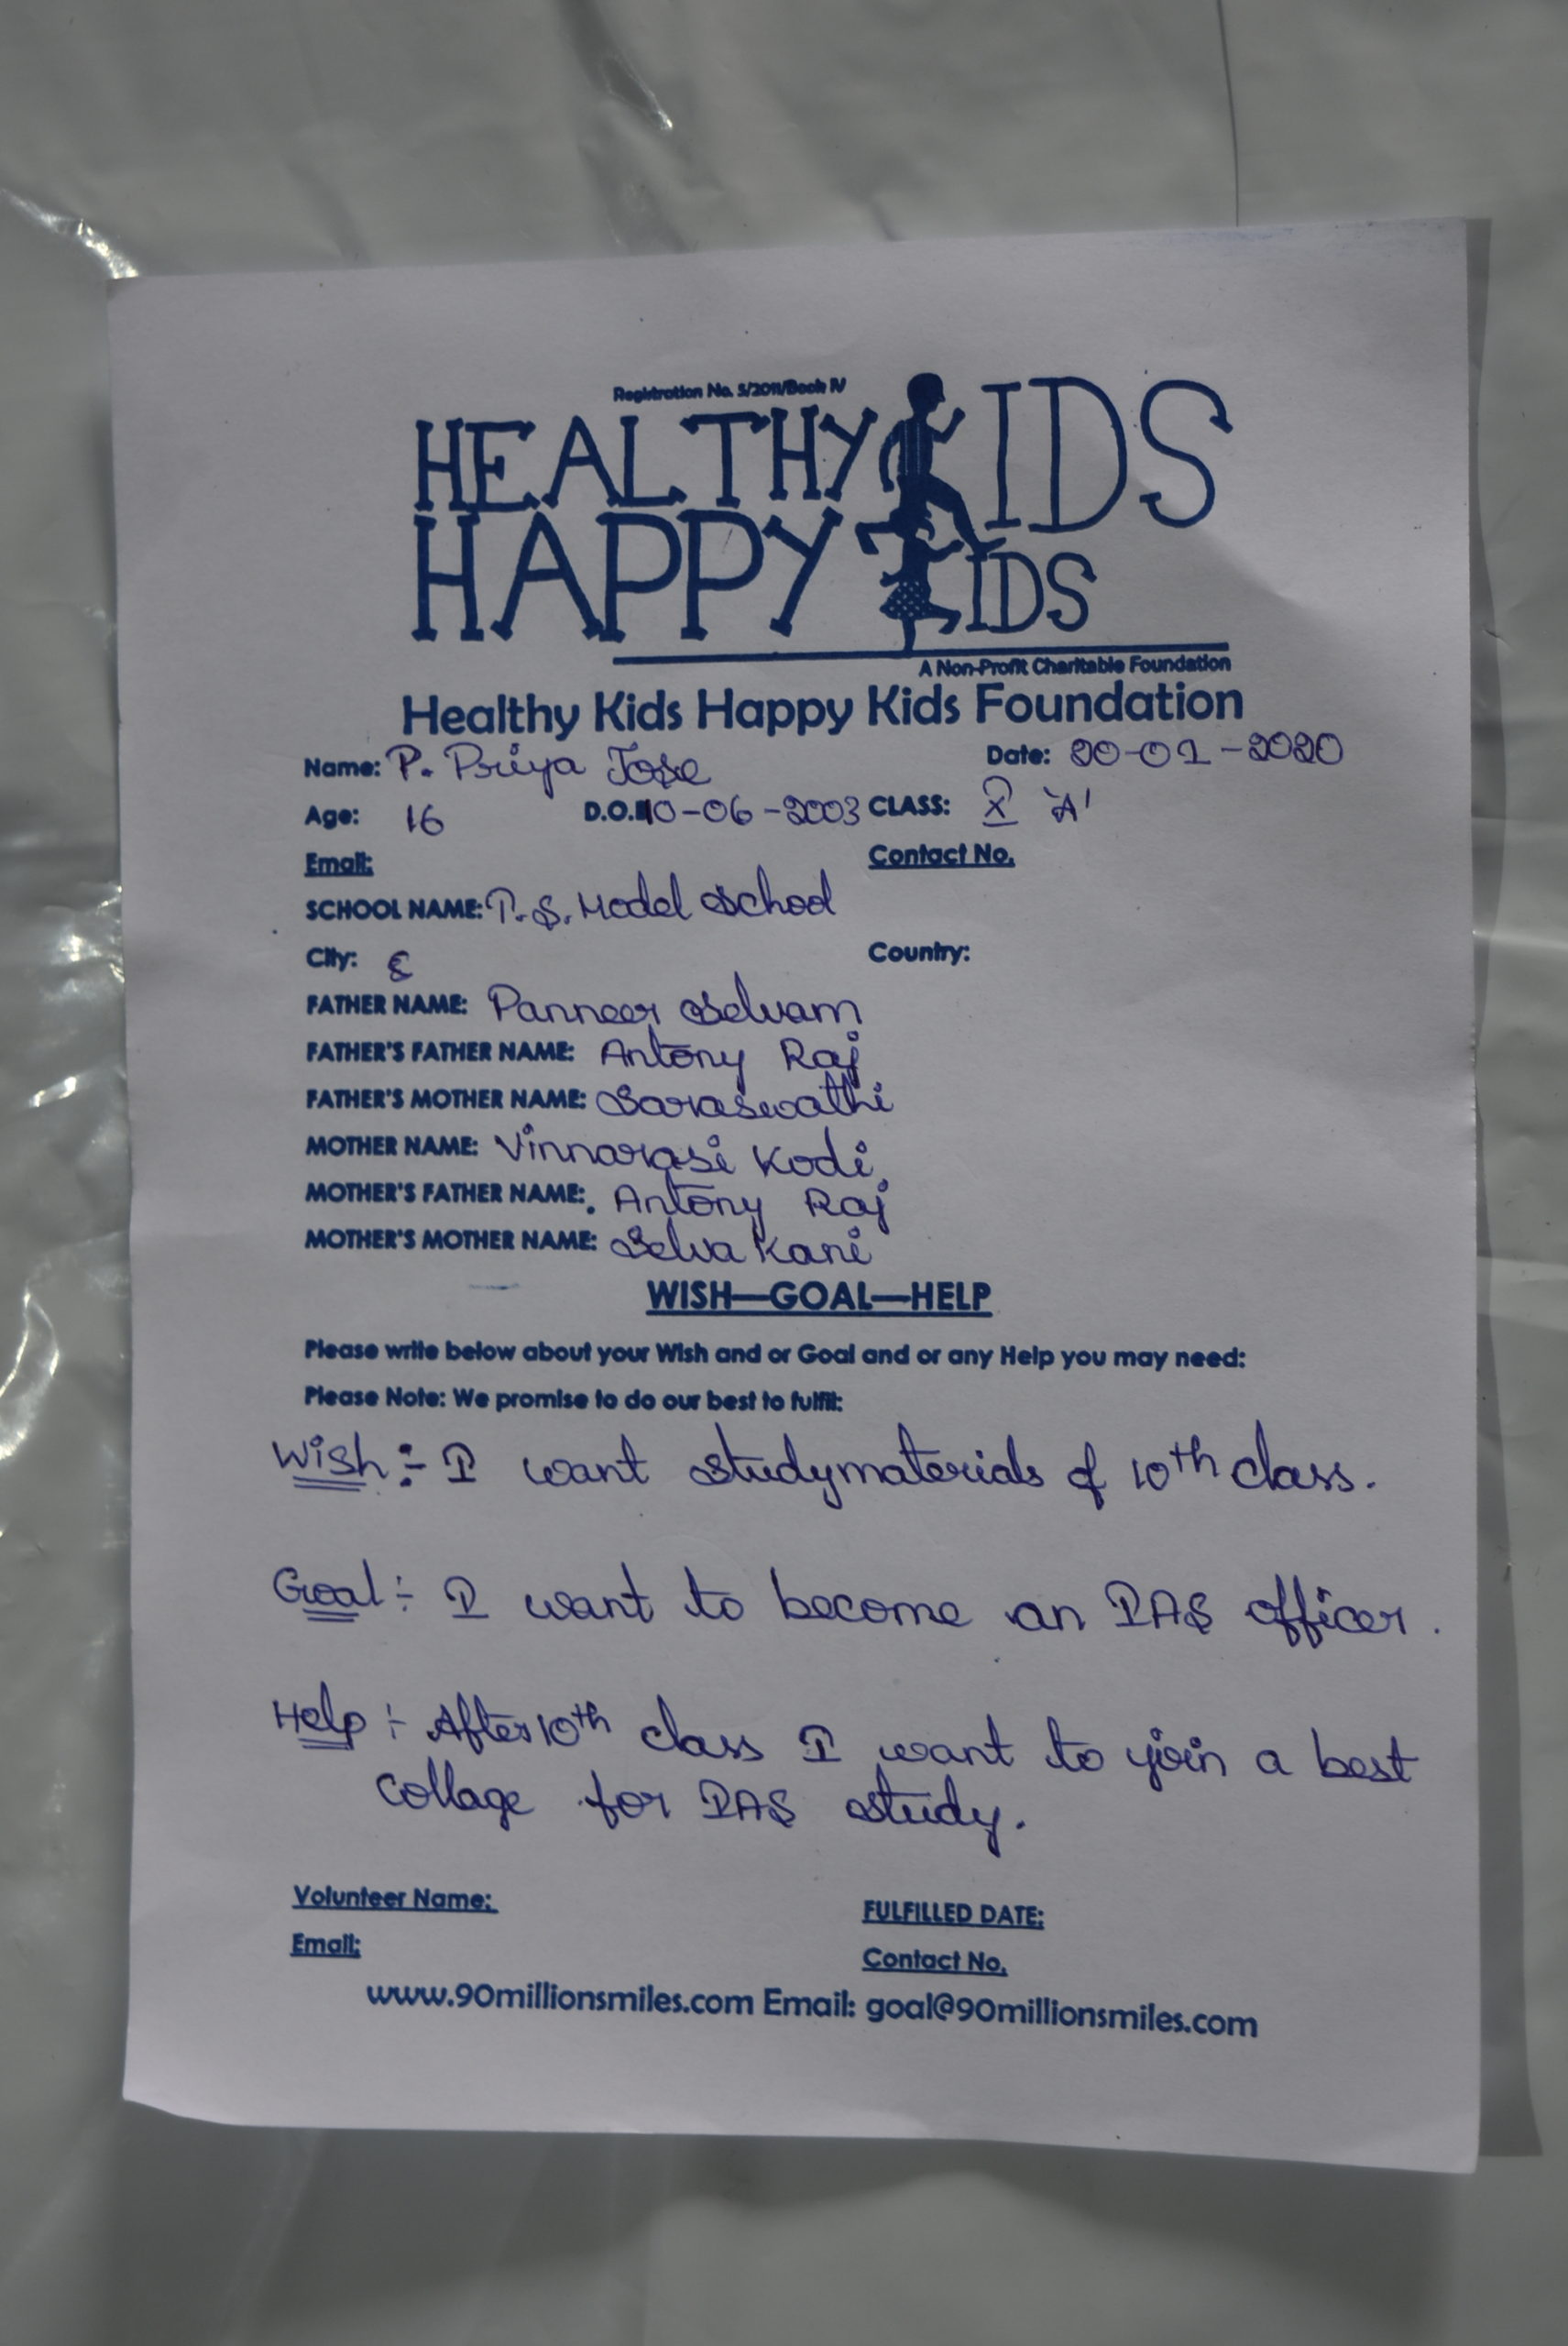 Registration No. 5/2011/Book IV
HEALTHY KIDS
HAPPY KIDS
A Non-Profit Charitable Foundation
Healthy Kids Happy Kids Foundation
Name: P. Priya Jose Date: 20-01-2020
Age: 16 D.O.B 10-06-2003 CLASS: X 'A'
Email: Contact No.
SCHOOL NAME: P.S. Model School
City: Country:
FATHER NAME: Panneer Selvam
FATHER'S FATHER NAME: Antony Raj
FATHER'S MOTHER NAME: Saraswathi
MOTHER NAME: Vinnarasi Kodi
MOTHER'S FATHER NAME: Antony Raj
MOTHER'S MOTHER NAME: Selva Kani
WISH—GOAL—HELP
Please write below about your Wish and or Goal and or any Help you may need:
Please Note: We promise to do our best to fulfil:
Wish :- I want studymaterials of 10th class.
Goal :- I want to become an IAS officer.
Help :- After 10th class I want to join a best
collage for IAS study.
Volunteer Name: FULFILLED DATE:
Email: Contact No.
www.90millionsmiles.com Email: goal@90millionsmiles.com